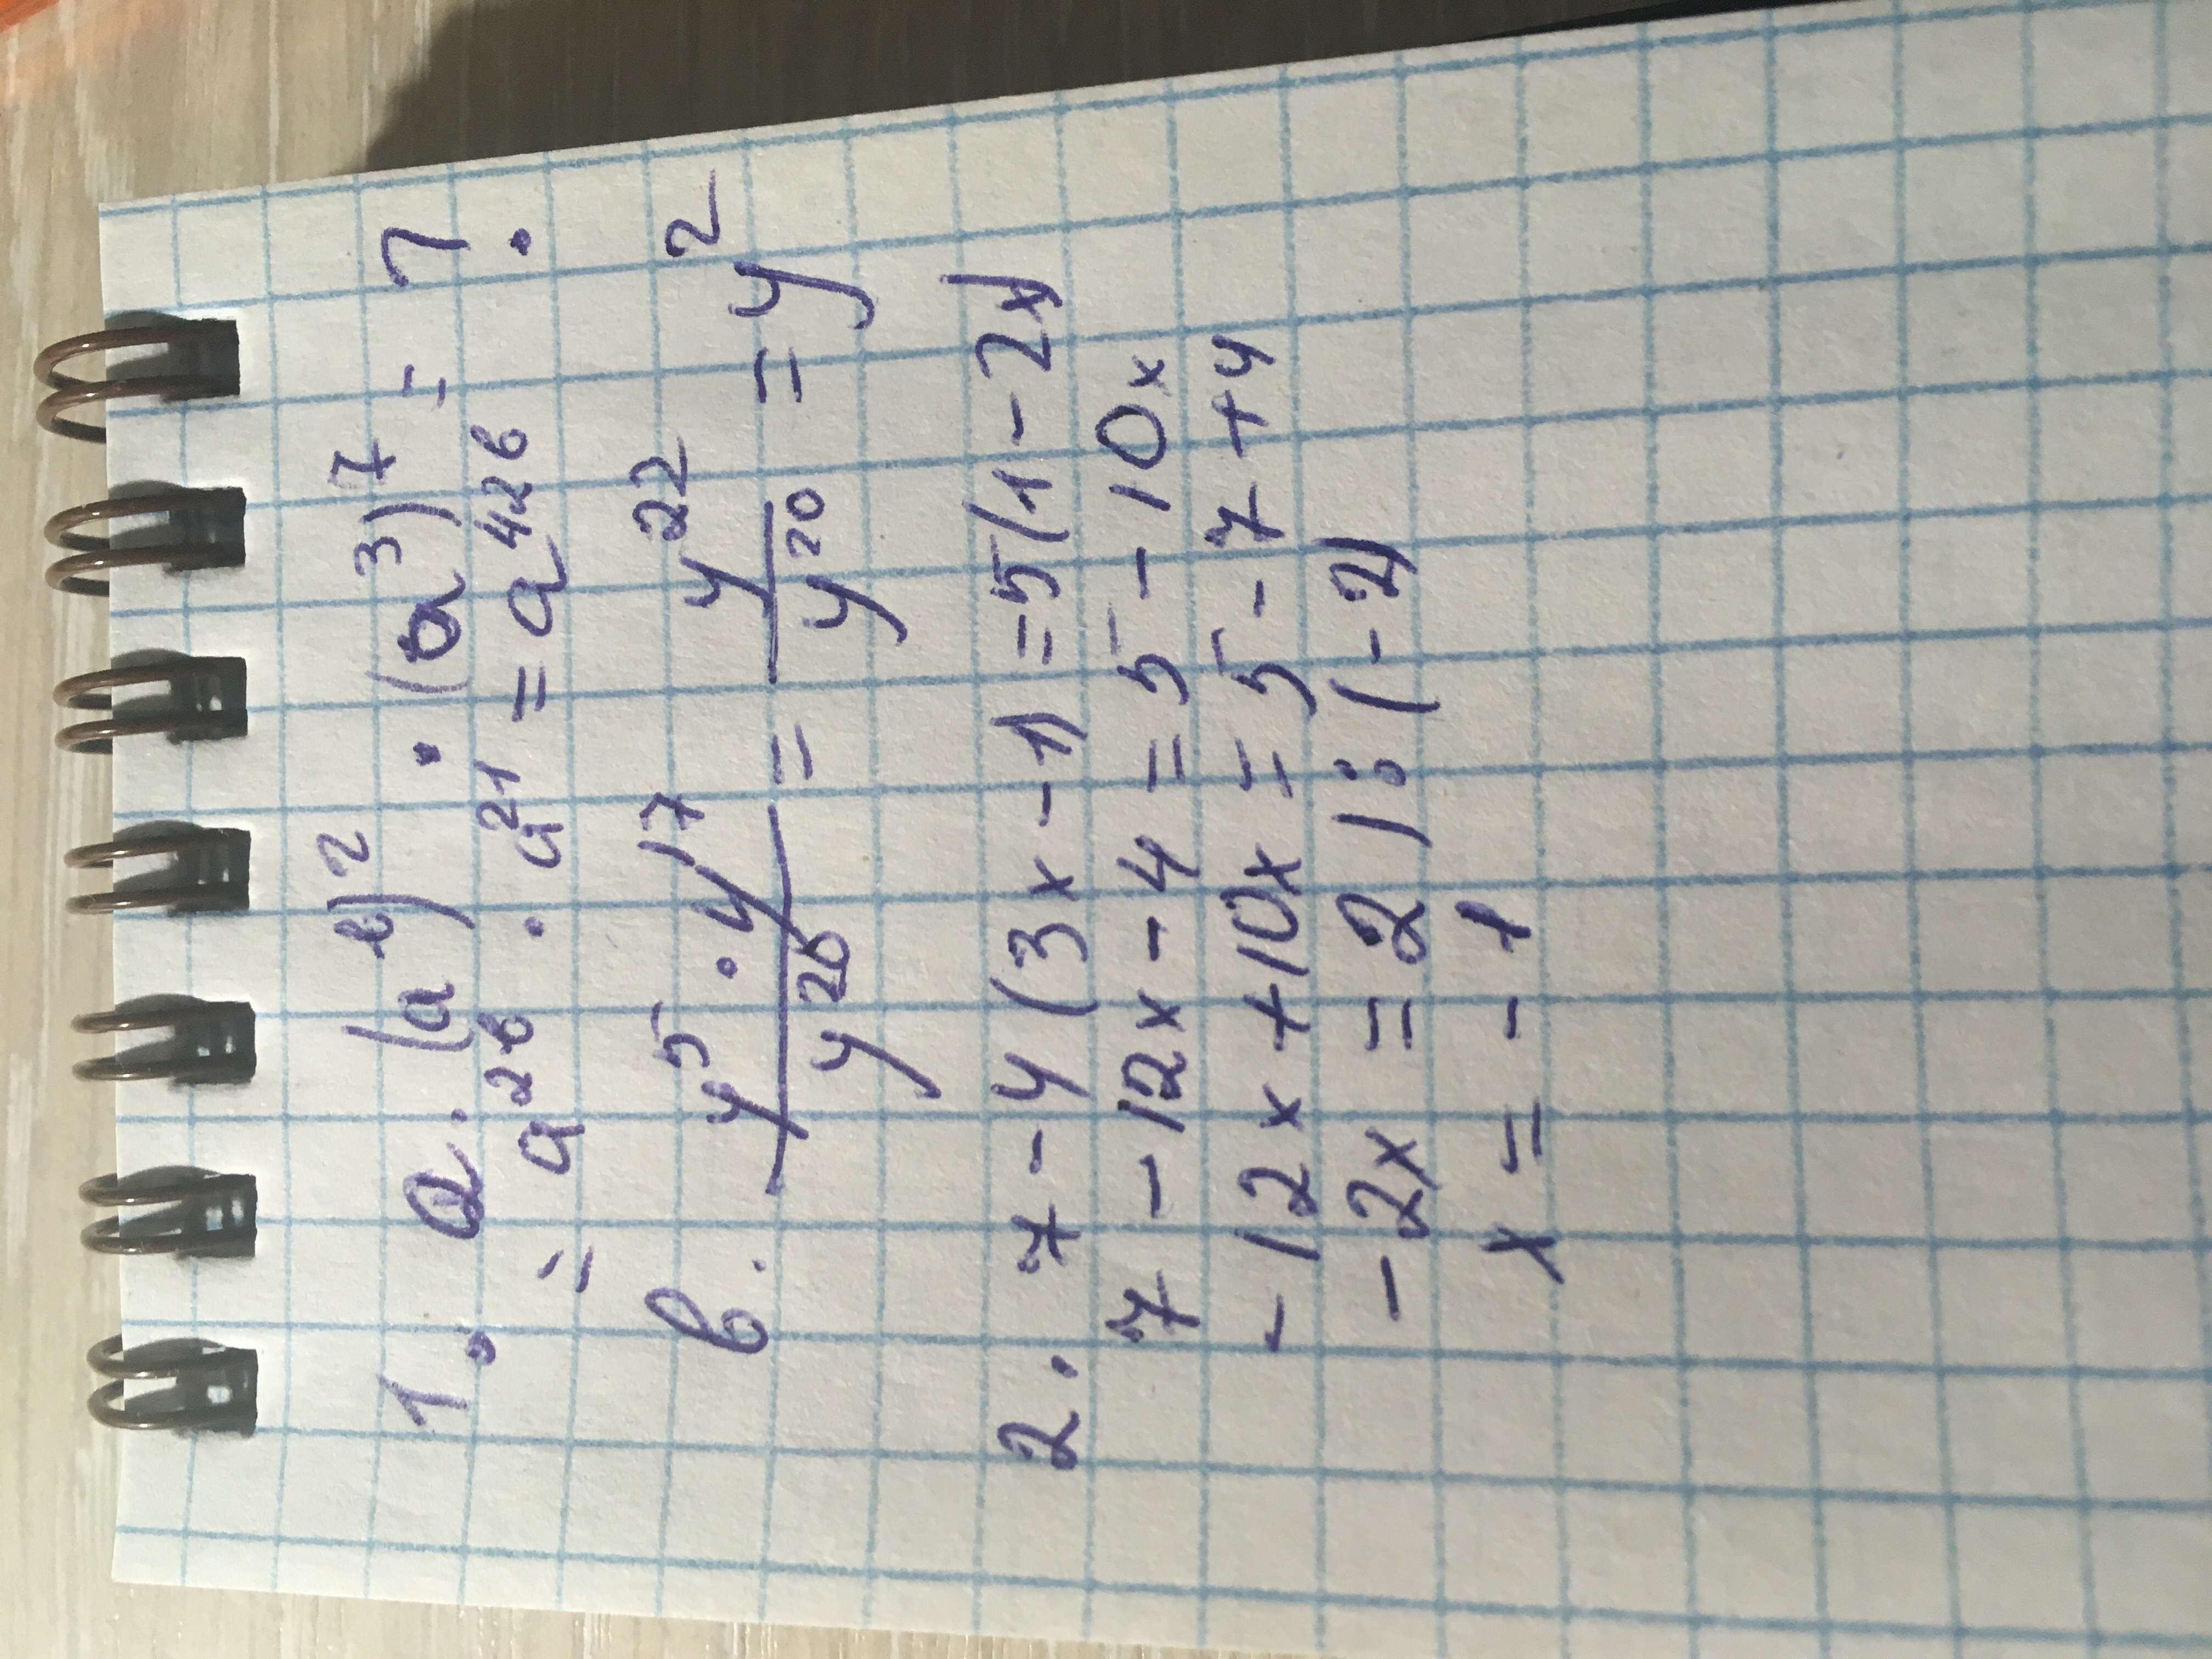 1. a. (a^в)^2 · (a^3)^7 = ?
= a^2в · a^21 = a^42в
в. y^5 · y^17 / y^20 = y^22 / y^20 = y^2
2. 7 - 4(3x - 1) = 5(1 - 2x)
7 - 12x - 4 = 5 - 10x
-12x + 10x = 5 - 7 + 4
-2x = 2 | : (-2)
x = -1